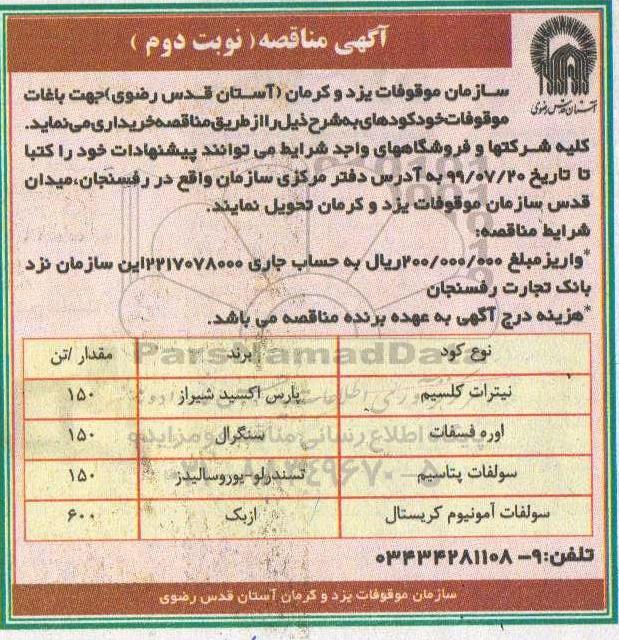 آگهی مناقصه ( نوبت دوم )
آستان قدس رضوی
سازمان موقوفات یزد و کرمان (آستان قدس رضوی)جهت باغات
موقوفات خود کودهای به شرح ذیل را از طریق مناقصه خریداری می نماید.
کلیه شرکتها و فروشگاههای واجد شرایط می توانند پیشنهادات خود را کتبا
تا تاریخ ۹۹/۰۷/۲۰ به آدرس دفتر مرکزی سازمان واقع در رفسنجان،میدان
قدس سازمان موقوفات یزد و کرمان تحویل نمایند.
شرایط مناقصه:
*واریز مبلغ ۲۰۰/۰۰۰/۰۰۰ریال به حساب جاری ۲۲۱۷۰۷۸۰۰۰این سازمان نزد
بانک تجارت رفسنجان
*هزینه درج آگهی به عهده برنده مناقصه می باشد.
نوع کود برند مقدار /تن
نیترات کلسیم پارس اکسید شیراز ۱۵۰
اوره فسفات سنگرال ۱۵۰
سولفات پتاسیم تسندرلو-یوروسالیدز ۱۵۰
سولفات آمونیوم کریستال ازبک ۶۰۰
ParsNamadData
پایگاه اطلاع رسانی مناقصه و مزایده
۰۲۱-۸۸۳۴۹۶۷۰-۵
تلفن:۹- ۰۳۴۳۴۲۸۱۱۰۸
سازمان موقوفات یزد و کرمان آستان قدس رضوی